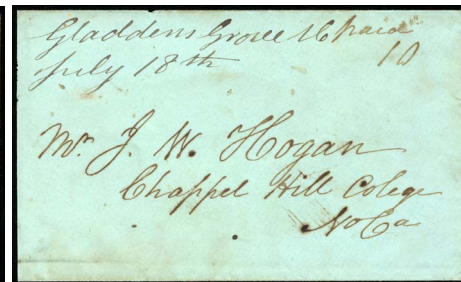 Gladdens Grove SC Paid
July 18th 10
Mr. J. W. Hogan
Chappel Hill Colege
No Ca